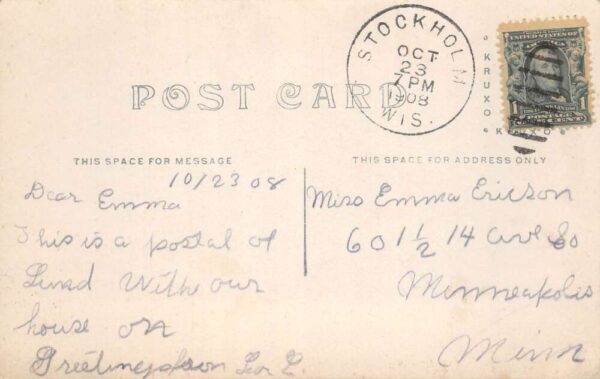 STOCKHOLM
OCT
23
7 PM
1908
WIS.
UNITED STATES OF
1
POSTAGE
CENT
KRUXO
KRUXO
POST CARD
THIS SPACE FOR MESSAGE
THIS SPACE FOR ADDRESS ONLY
10/23 08
Dear Emma
This is a postal of
Lund With our
house on
Greetings from
Miss Emma Ericson
601 1/2 14 Ave So
Minneapolis
Minn